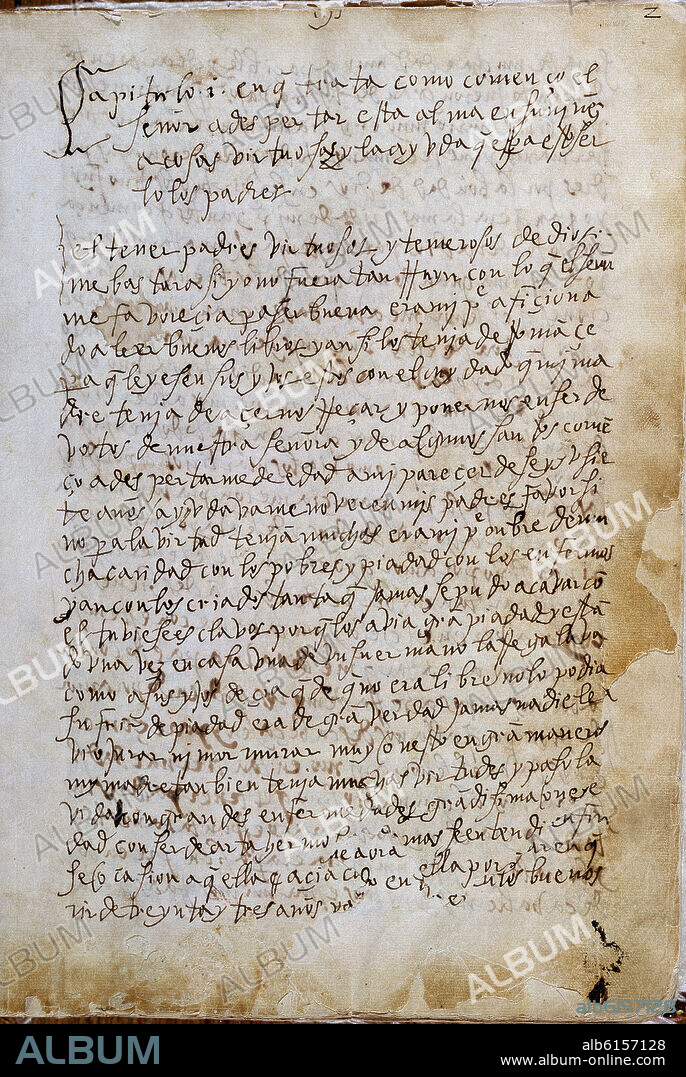 2
Capitulo .i. en q̃ trata como començo el
señor a despertar esta alma en su niñez
a cosas virtuosas y la ayuda q̃ es para esto ser
lo los padres
el tener padres virtuosos y temerosos de dios
me bastara si yo no fuera tan rruyn con lo q̃ el señor
me favorecia para ser buena era mi pe afiçiona
do a leer buenos libros y ansi los tenia de rromãçe
para q̃ leyesen sus yjos estos con el cuydad q̃ mi ma
dre tenia de açernos rreçar y ponernos en ser de
votos de nuestra señora y de algunos santos comẽ
ço a despertarme de edad a mi parecer de seys u sie
te años ayudavame no ver en mis padres favor si
no para la virtud tenian muchas era mi pe onbre de mu
cha caridad con los pobres y piadad con los enfermos
y aun con los criados tanta q̃ jamas se pudo acavar cõ
el tubiese esclavos porq̃ los avia grã piadad y estã
do una vez en casa una de un su ermano la rregalava
como a sus yjos deçia q̃ de q̃ no era libre no lo podia
sufrir de piadad era de grã verdad jamas nadie le
vio jurar ni mormurar muy onesto en grã manera
mi madre tanbien tenia muchas virtudes y paso la
vida con grandes enfermedades grãdisima onese
dad con ser de arta hermo mas se entendi
se ocasion a q̃ ella açia ella por
en buenos
rir de treynta y tres años
ALBUM
alb6157128
ALBUM
alb6157128
www.album-online.com